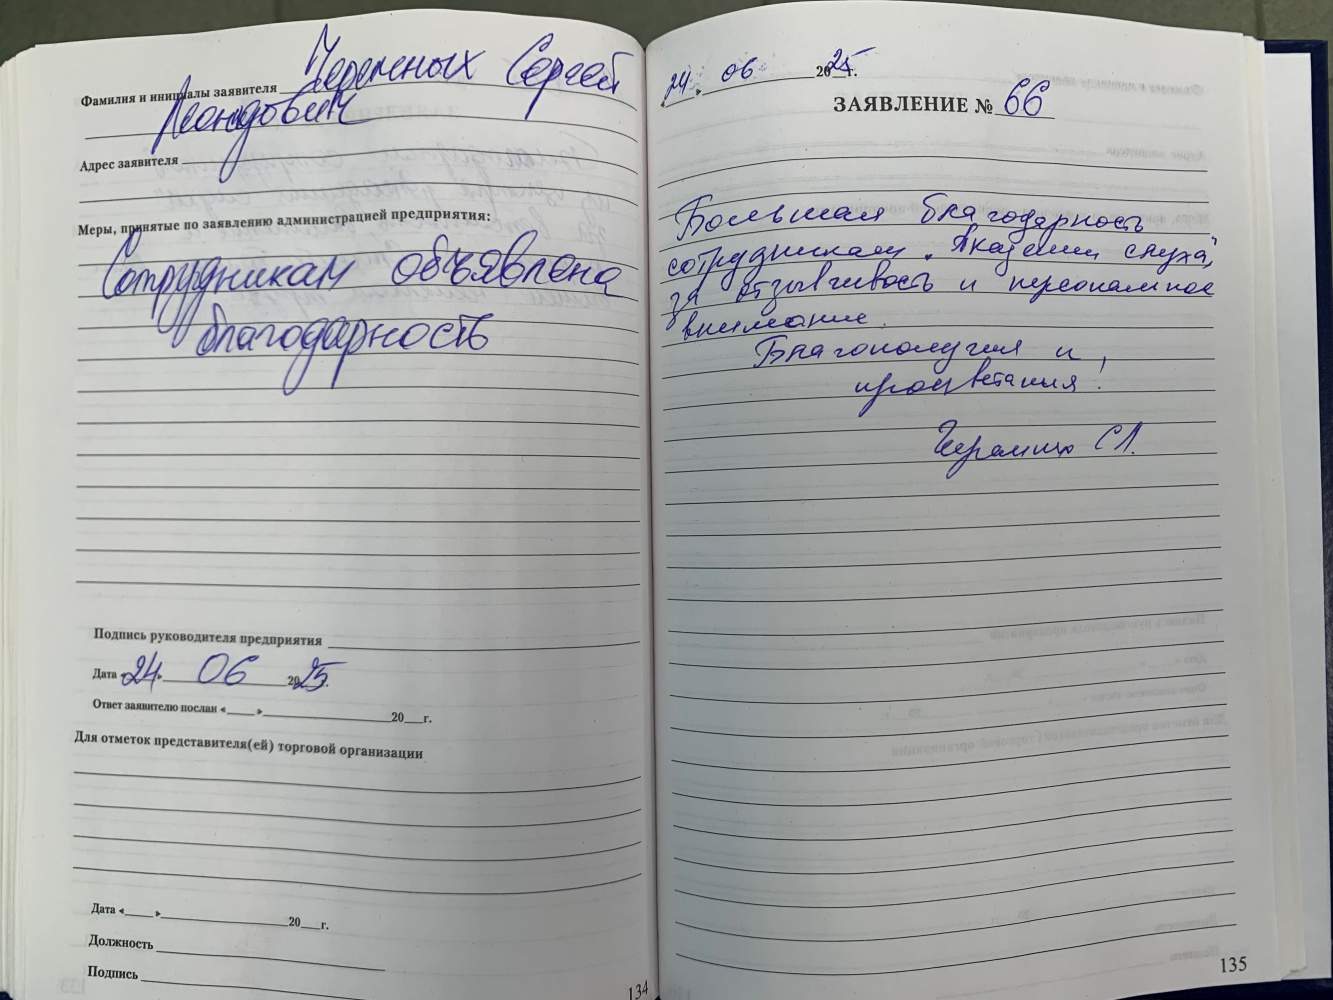 Фамилия и инициалы заявителя Черемных Сергей
Леонидович
Адрес заявителя
Меры, принятые по заявлению администрацией предприятия:
Сотрудникам объявлена
благодарность
Подпись руководителя предприятия
Дата «24» 06 2025г.
Ответ заявителю послан «___» ___ 20__г.
Для отметок представителя(ей) торговой организации
Дата «___» ___ 20__г.
Должность
Подпись
134
24. 06 2025г.
ЗАЯВЛЕНИЕ № 66
Большая благодарность
сотрудникам "Академии слуха",
за отзывчивость и персональное
внимание.
Благополучия и
процветания!
С.Л.
135